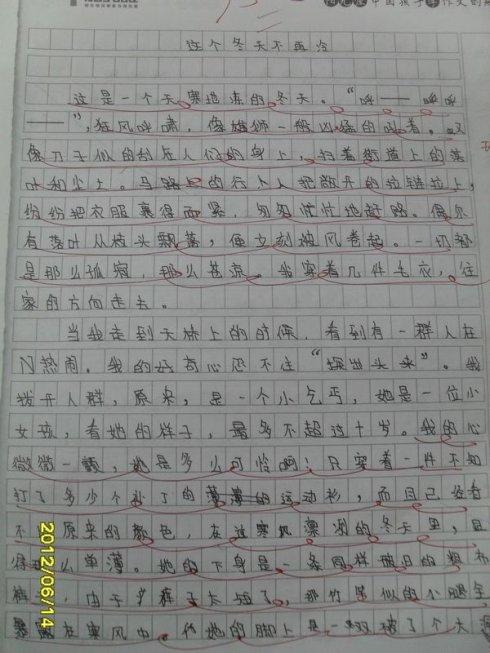 中国孩子
这个冬天不再冷
这是一个天寒地冻的冬天。“呼——呼呼
——”，狂风呼啸，像雄狮一般凶猛的叫着。又
像刀子似的刮在人们的身上，扫着街道上的落
叶和尘土。马路上的行人把敞开的拉链拉上，
纷纷把衣服裹得紧，匆匆忙忙地赶路。偶尔
有落叶从枝头飘落，便立刻被风卷起。一切都
是那么孤寂，那么苍凉。我穿着几件毛衣，往
家的方向走去。
当我走到天桥上的时候，看到有一群人在
热闹。我的好奇心忍不住“探出头来”。我
拨开人群，原来，是一个小乞丐，她是一位小
女孩，看她的样子，最多不超过十岁。我的心
微微一颤，她是多么可怜啊！只穿着一件不知
打了多少个补丁的运动衫，而且已经看
不 原来的颜色，在这寒风凛冽的冬天里，显
得 么单薄。她的下身是一条同样破旧的粗布
裤，由于裤子太短了，那竹竿似的小腿全
在寒风中。她的脚上是一双破了个大
2012/06/14